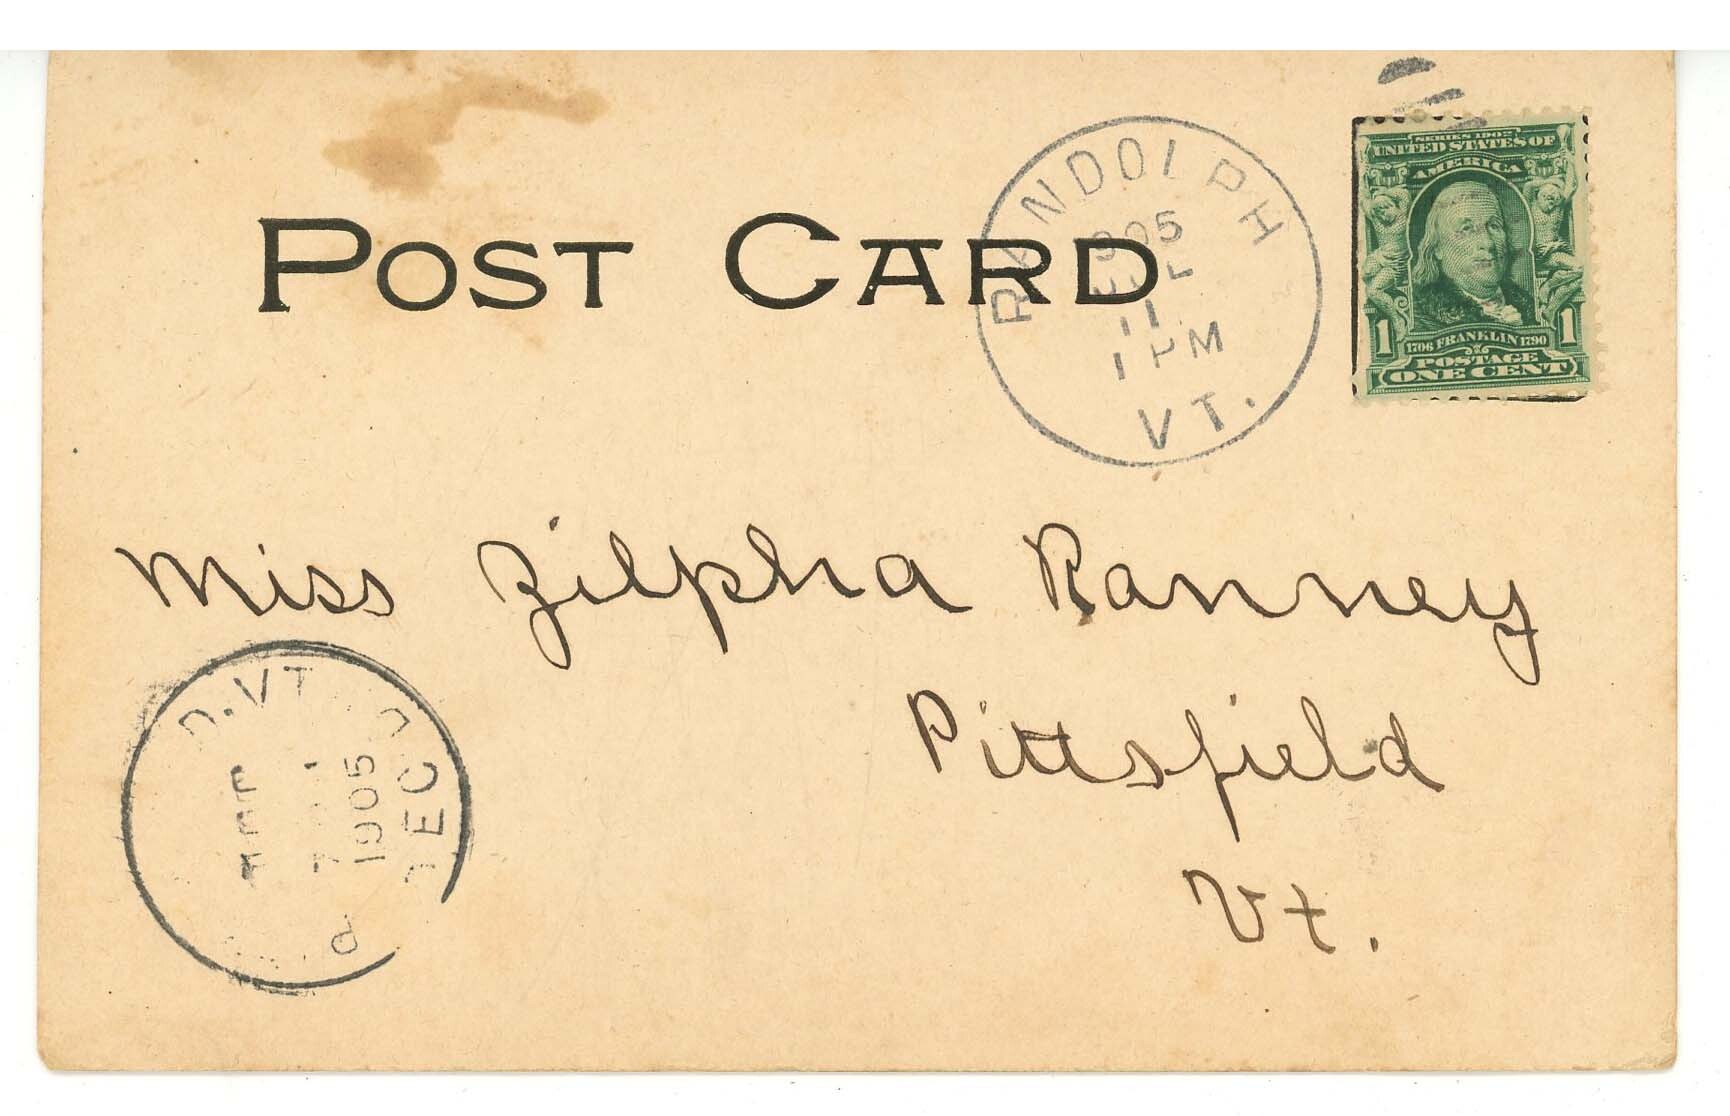 POST CARD
RANDOLPH
1905
11
1 PM
VT.
SERIES 1902
UNITED STATES OF
AMERICA
1 1
1706 FRANKLIN 1790
POSTAGE
ONE CENT
Miss Zilpha Ranney
Pittsfield
Vt.
D. VT.
REC'D
1905